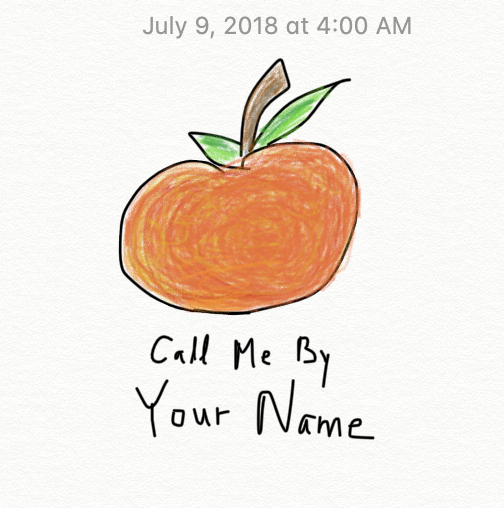 July 9, 2018 at 4:00 AM
Call Me By
Your Name